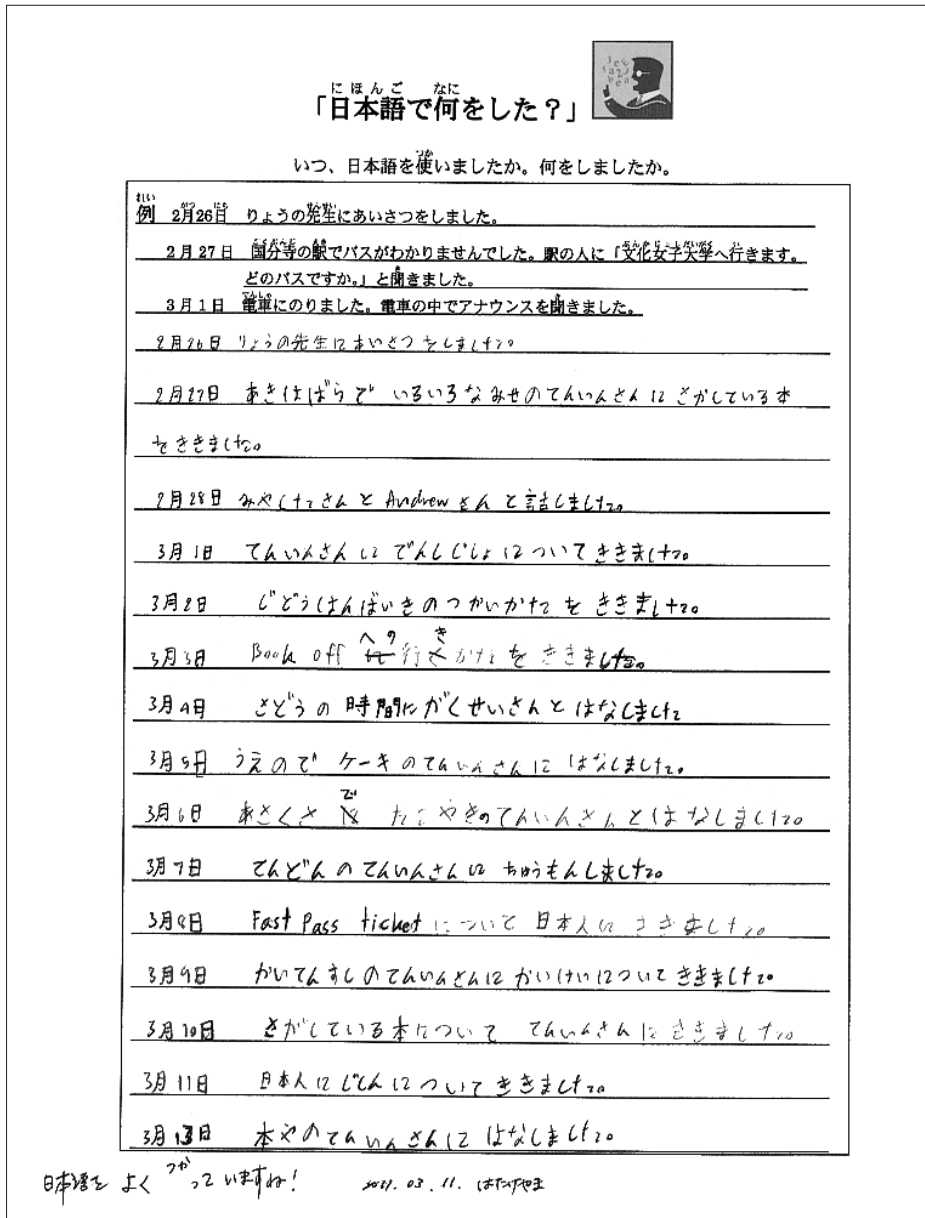 にほんご なに
「日本語で何をした？」
つか
いつ、日本語を使いましたか。何をしましたか。
れい
例 2月26日 りょうの先生にあいさつをしました。
2月27日 国分寺の駅でバスがわかりませんでした。駅の人に「文化女子大学へ行きます。
どのバスですか。」と聞きました。
3月1日 電車にのりました。電車の中でアナウンスを聞きました。
2月26日 りょうの先生にあいさつをしました。
2月27日 あきはばらで いろいろなみせのてんいんさんに さがしている本
をききました。
2月28日 みやしたさんと Andrew さんと話しました。
3月1日 てんいんさんに でんしじしょについてききました。
3月2日 じどうはんばいきのつかいかたを ききました。
への き
3月3日 Book off 行 かたを ききました。
3月4日 さどうの時間にがくせいさんとはなしました
3月5日 うえので ケーキのてんいんさんに はなしました。
で
3月6日 あさくさ たこやきのてんいんさんとはなしました。
3月7日 てんどんのてんいんさんに ちゅうもんしました。
3月8日 Fast Pass ticket について 日本人に ききました。
3月9日 かいてんすしのてんいんさんに かいけいについてききました。
3月10日 さがしている本について てんいんさんにききました。
3月11日 日本人にじしんについてききました。
3月13日 本やのてんいんさんに はなしました。
つか
日本語を よく っていますね! 03. 11. はたけやま